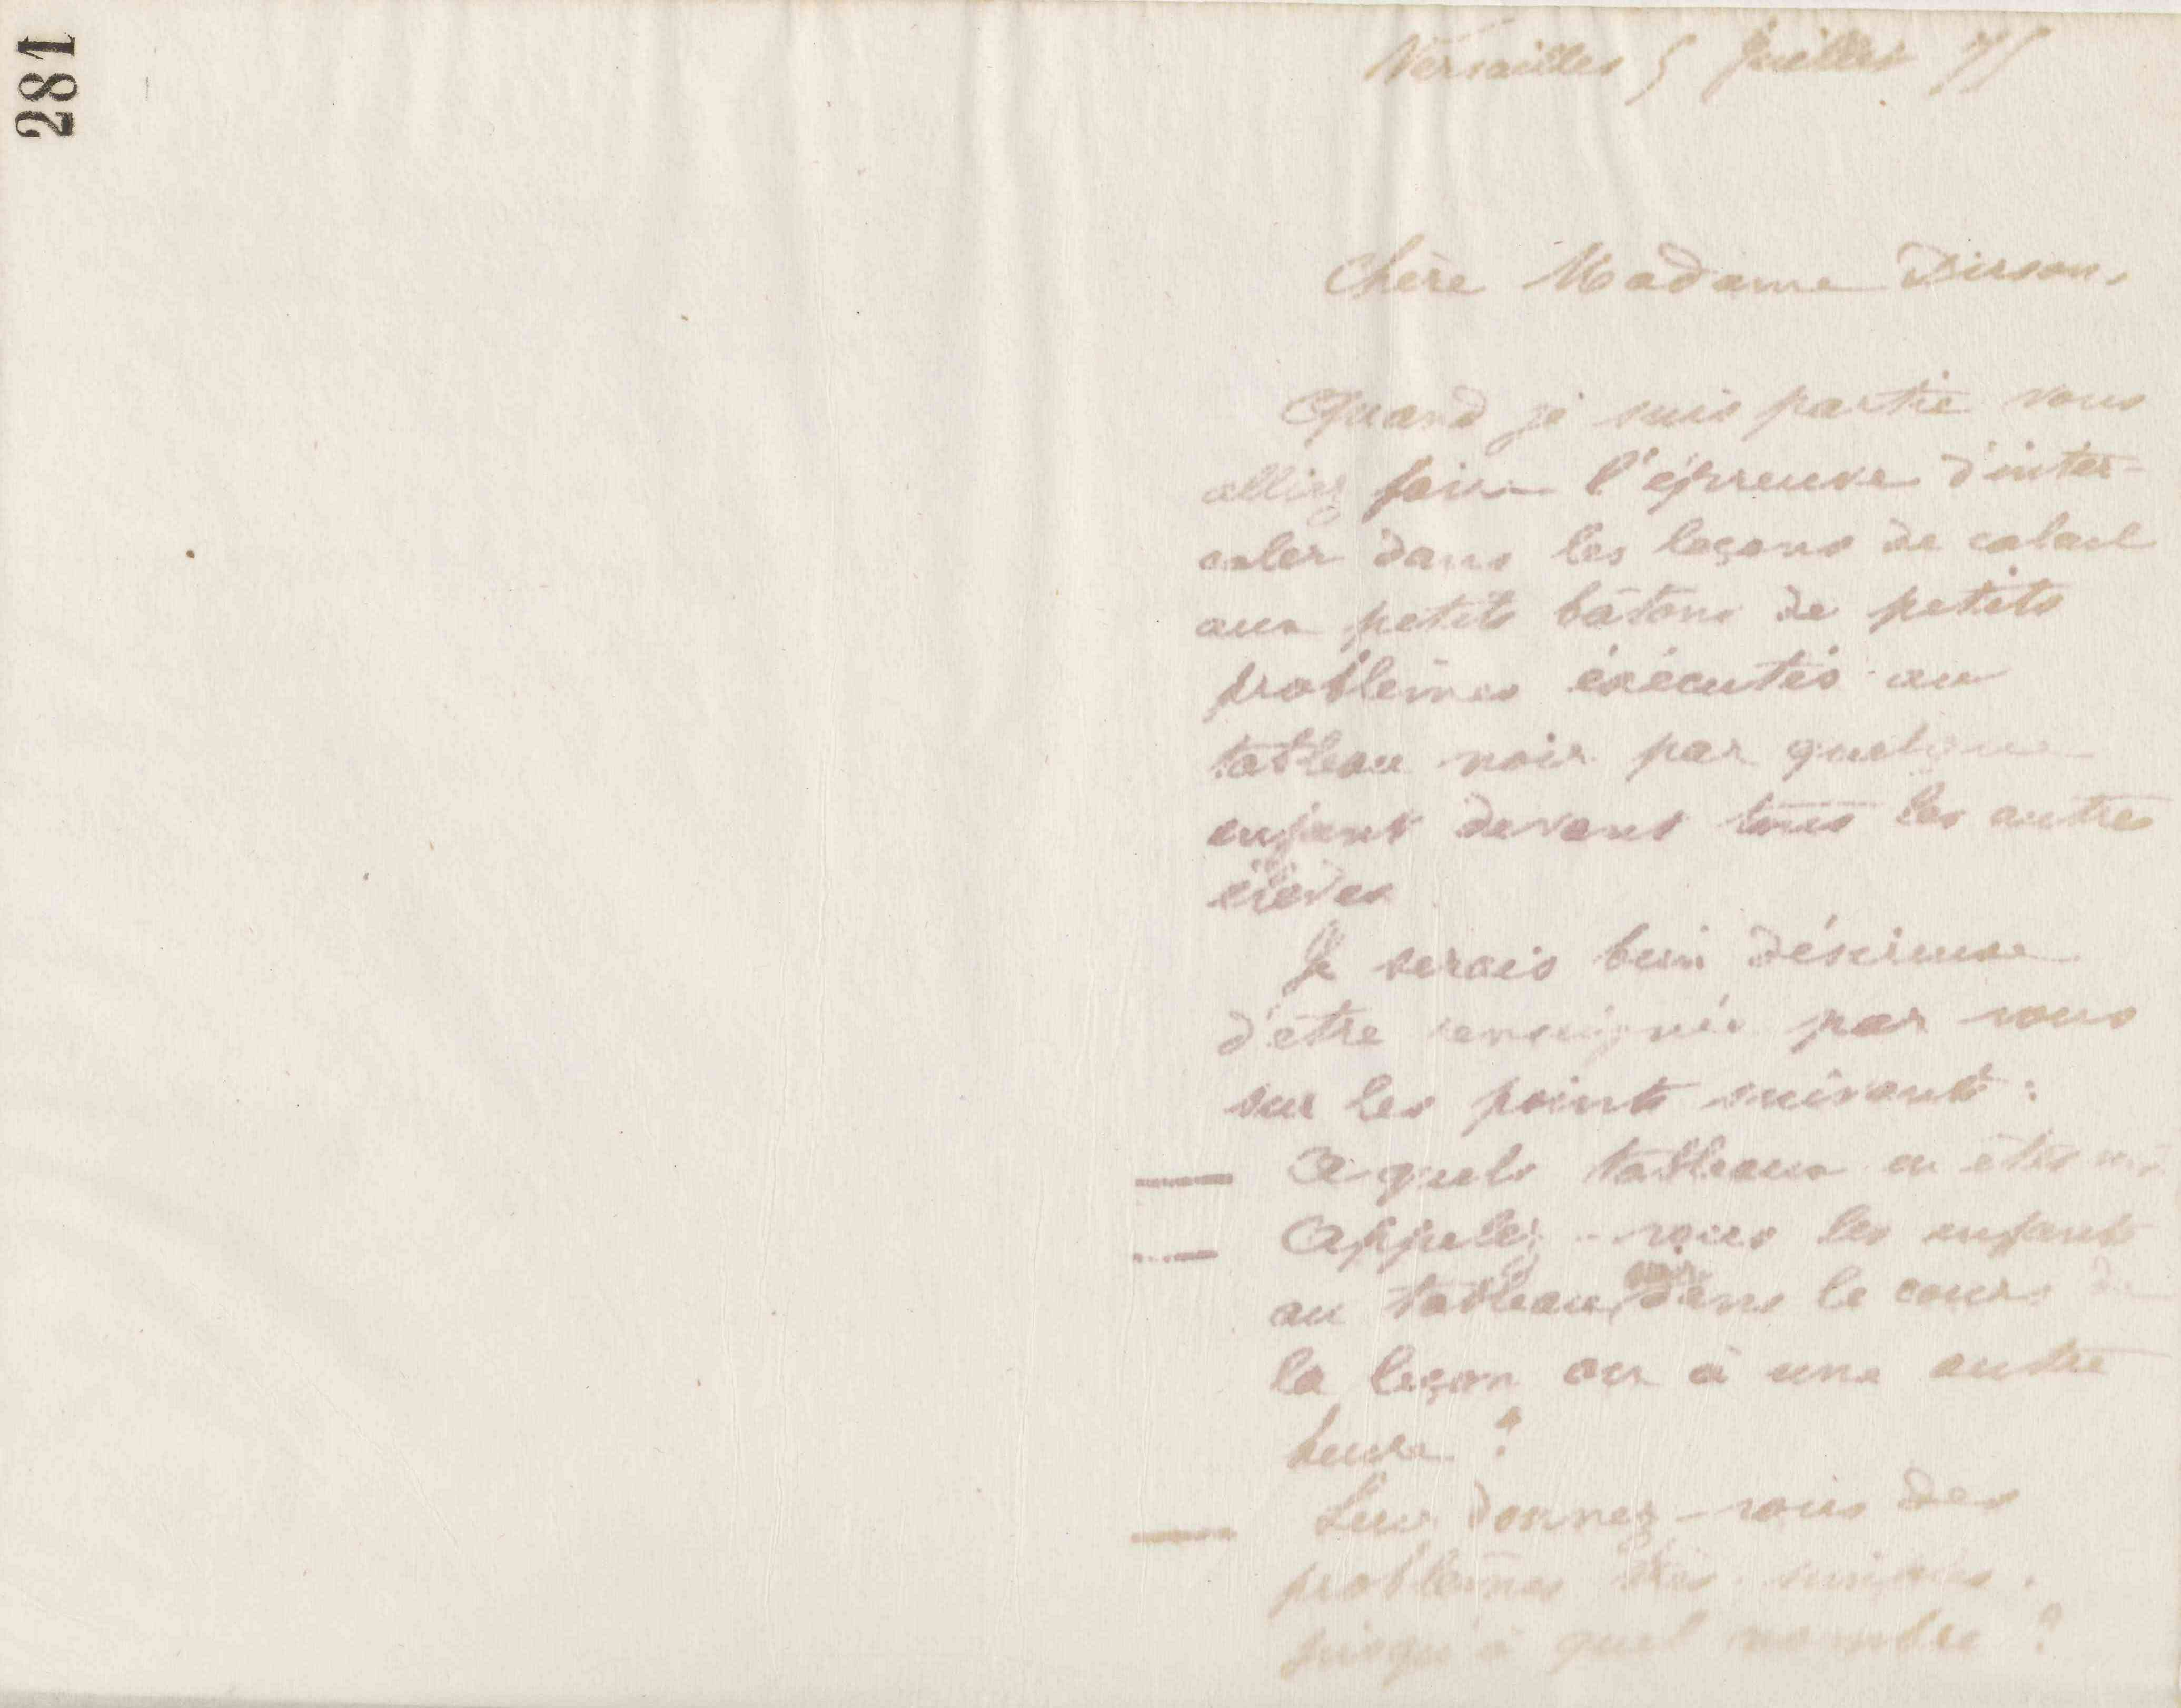 281
Versailles 5 Juillet 75
Chère Madame Dirson,
Quand je suis partie vous
alliez faire l'épreuve d'inter-
caler dans les leçons de calcul
aux petits bâtons de petits
problèmes éxécutés au
tableau noir par quelque
enfant devant tous les autres
élèves
Je serais bien désireuse
d'être renseignée par vous
sur les points suivants :
— A quels tableaux en êtes
— Appelez-vous les enfants
au tableau noir dans le cours de
la leçon ou à une autre
heure ?
— Leur donnez-vous des
problèmes très simples.
jusqu'à quel nombre ?